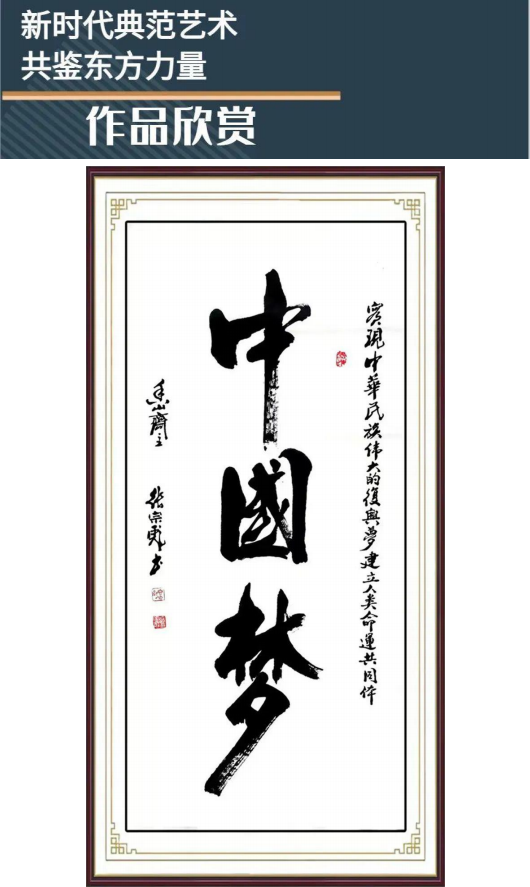 新时代典范艺术
共鉴东方力量
作品欣赏
實現中華民族伟大的復興夢建立人类命運共同体
中國梦
山齋主
張宗彪书